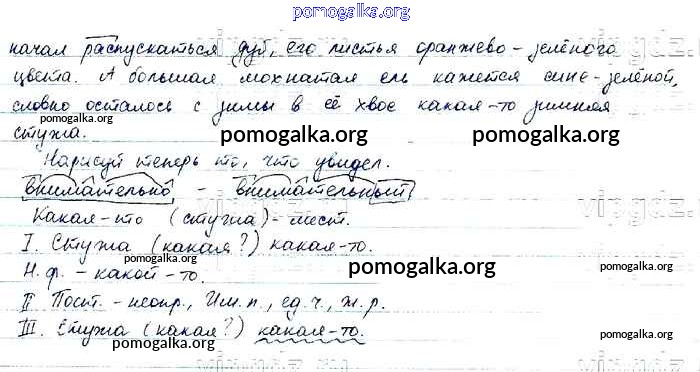 pomogalka.org
начал распускаться дуб, его листья оранжево-зелёного
цвета. А большая мохнатая ель кажется сине-зелёной,
словно осталось с зимы в её хвое какая-то зимняя
стужа.
pomogalka.org pomogalka.org pomogalka.org
Нарисуй теперь то, что увидел.
внимательно - внимательный
Какая-то (стужа) - мест.
I. Стужа (какая?) какая-то.
Н.ф. - какой-то.
pomogalka.org
II Пост. - неопр., Им.п., ед.ч., ж.р.
III. Стужа (какая?) какая-то.
pomogalka.org pomogalka.org